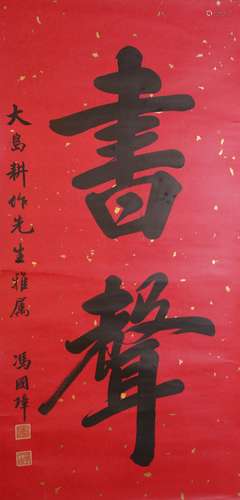 書聲
大島耕作先生雅属
馮國璋